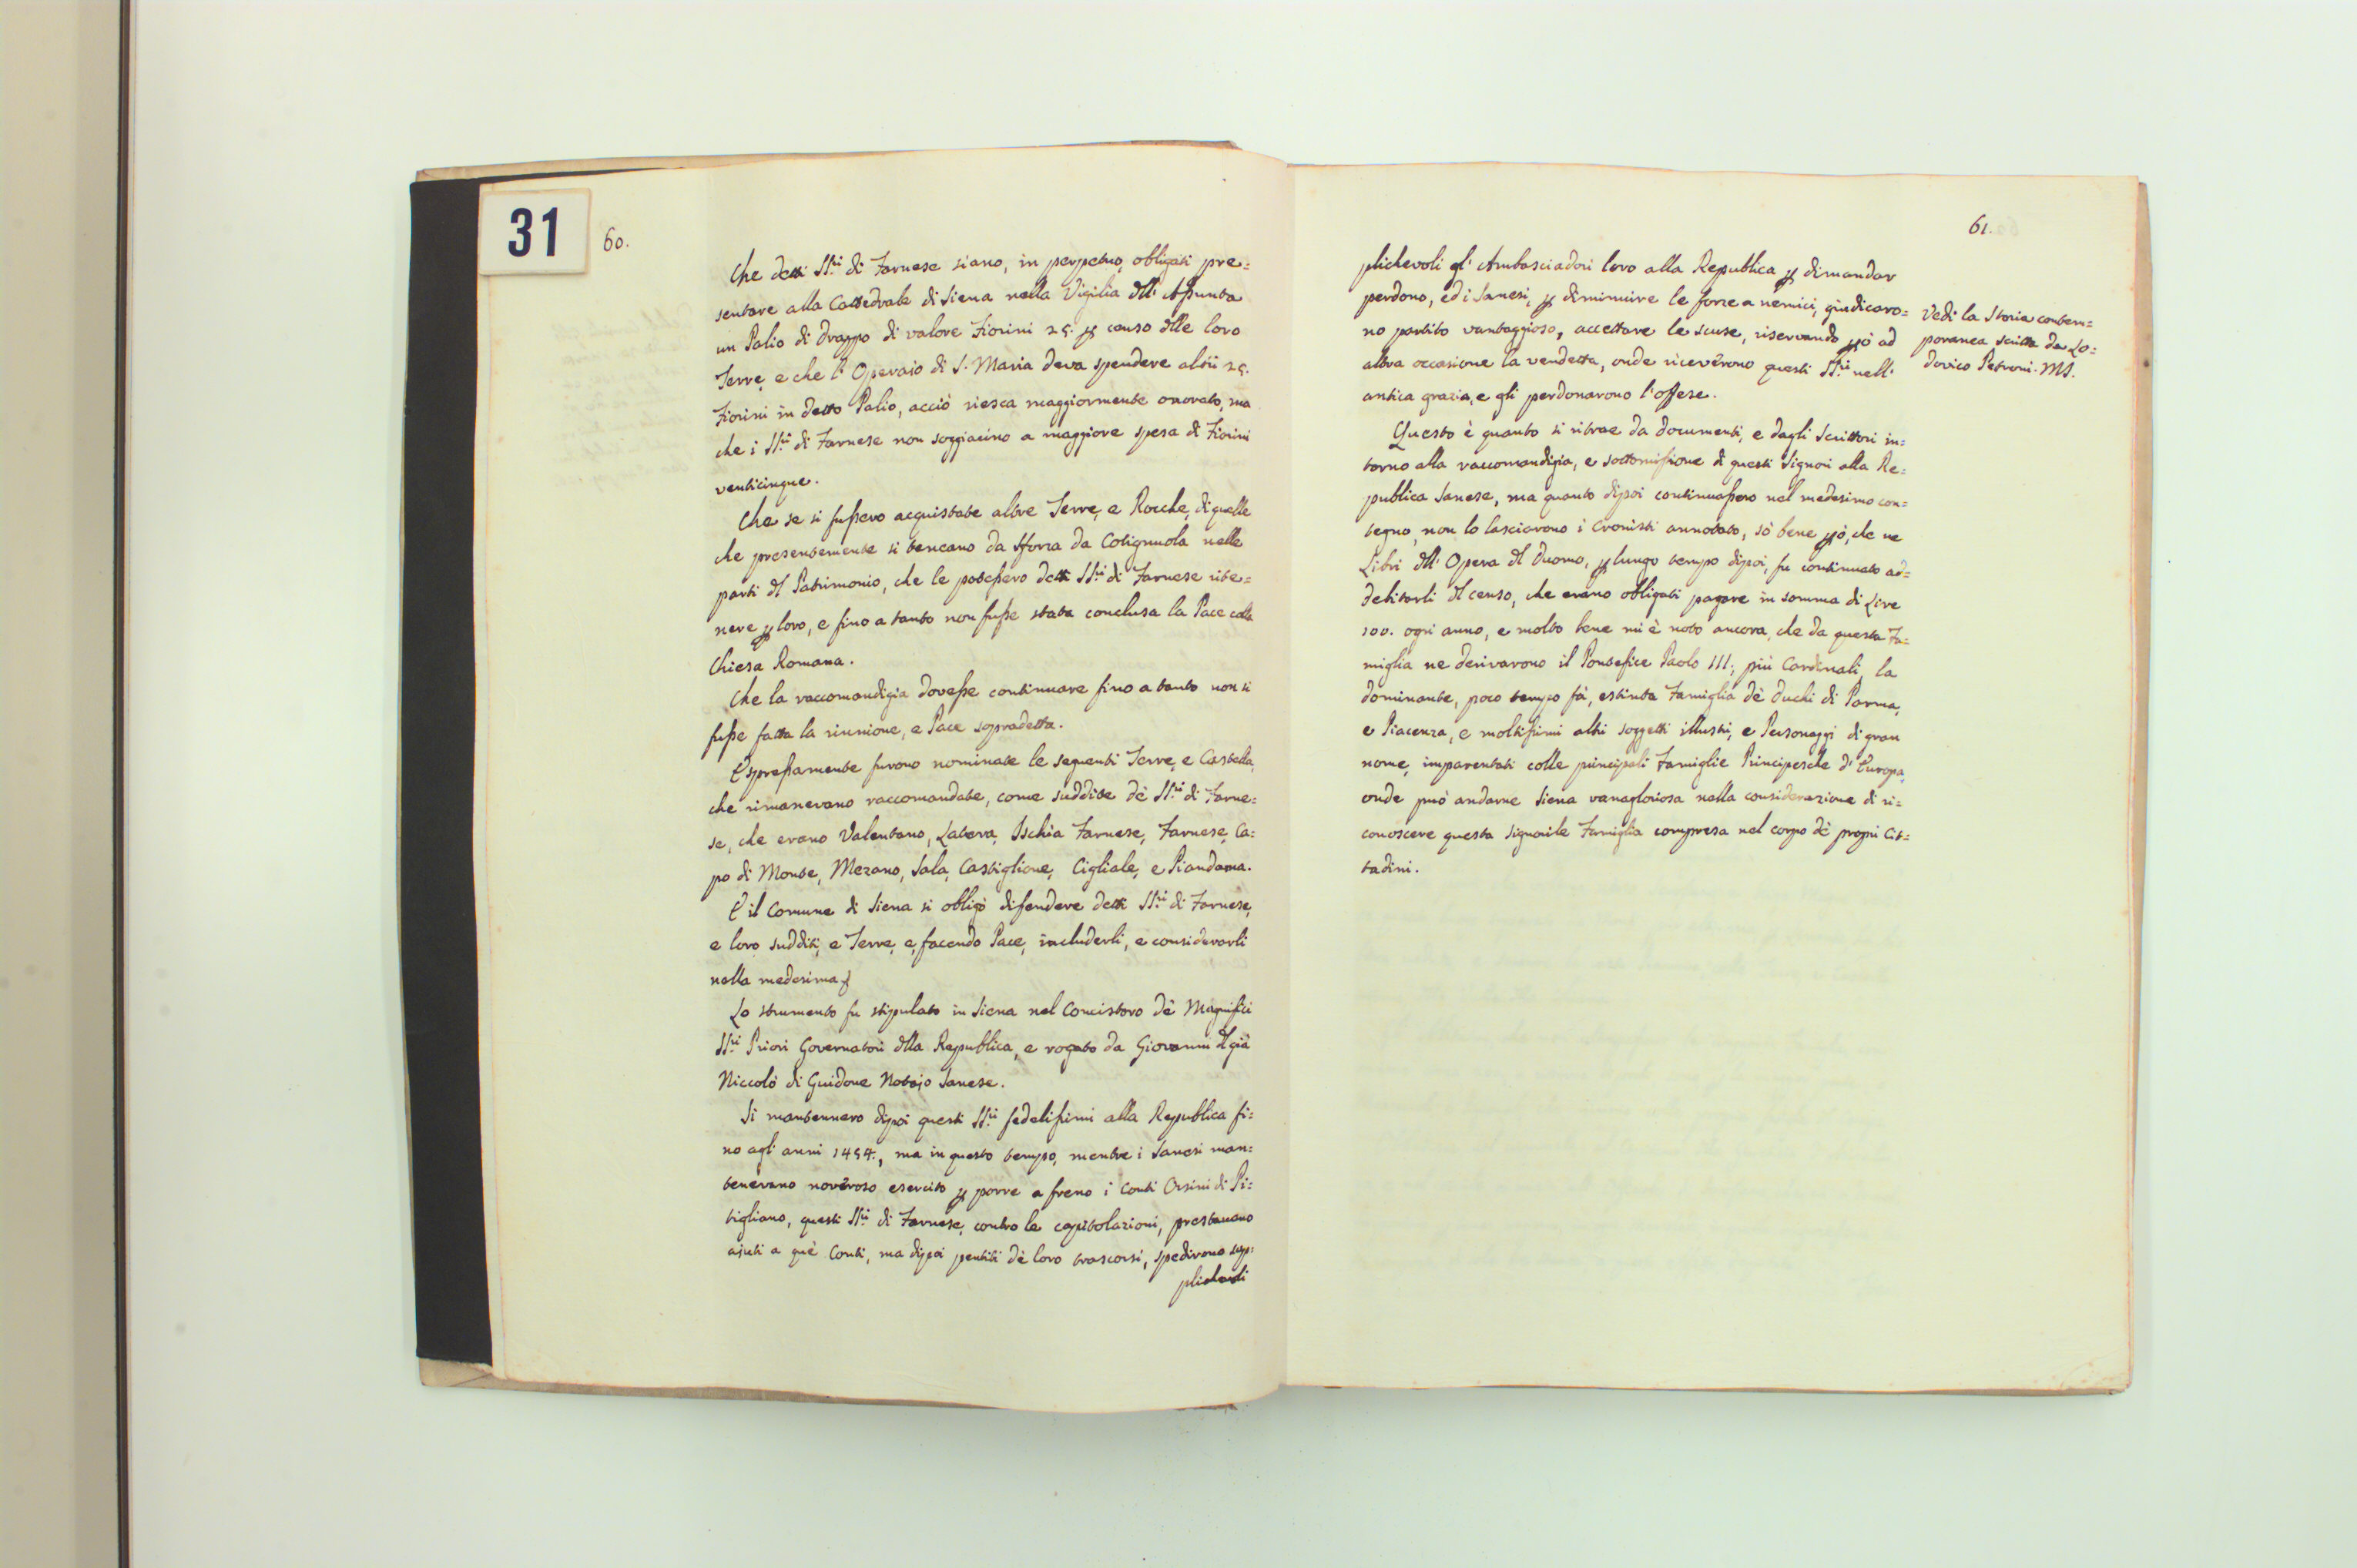 31
60.
Che detti SS.ri di Farnese siano, in perpetuo, obligati pre=
sentare alla Cattedrale di Siena nella Vigilia dll' Assunta
un Palio di drappo di valore Fiorini 25. p censo dlle loro
Terre, e che l' Operaio di S. Maria deva spendere altri 25.
Fiorini in detto Palio, acciò riesca maggiormente onorato, ma
che i SS.ri di Farnese non soggiacino a maggiore spesa di Fiorini
venticinque.
Che se si fussero acquistate altre Terre, e Rocche, di quelle
che presentemente si tencano da Sforza da Cotignuola nelle
parti dl Patrimonio, che le potessero detti SS.ri di Farnese rite=
nere p loro, e fino a tanto non fusse stata conclusa la Pace colla
Chiesa Romana.
Che la raccomandigia dovesse continuare fino a tanto non si
fusse fatta la riunione, e Pace sopradetta.
Espressamente furono nominate le seguenti Terre, e Castella,
che rimanevano raccomandate, come suddite dè SS.ri di Farne=
se, che erano Valentano, Latera, Ischia Farnese, Farnese, Ca=
po di Monte, Mezano, Sala, Castiglione, Cigliale, e Piandama.
E il Comune di Siena si obligò difendere detti SS.ri di Farnese,
e loro sudditi, e Terre, e, facendo Pace, includerli, e considerarli
nella medesima
Lo strumento fu stipulato in Siena nel Concistoro dè Magnifici
SS.ri Priori Governatori dlla Republica, e rogato da Giovanni dl già
Niccolò di Guidone Notajo Sanese.
Si mantennero dipoi questi SS.ri fedelissimi alla Republica fi=
no agl' anni 1454., ma in questo tempo, mentre i Sanesi man=
tenevano novèroso esercito p porre a freno i Conti Orsini di Pi=
tigliano, questi SS.ri di Farnese, contro le capitolazioni, prestavano
ajuti a què Conti, ma dipoi pentiti dè loro trascorsi, spedirono sup=
plichevoli
61.
plichevoli gl' Ambasciadori loro alla Republica p dimandar
perdono, ed i Sanesi, p diminuire le forze a nemici, giudicaro=
no partito vantaggioso, accettare le scuse, riservando pò ad
altra occasione la vendetta, onde ricevèrono questi SS.ri nell'
antica grazia, e gli perdonarono l'offese.
Vedi la Storia contem=
poranea scritta da Lo=
dovico Petroni. MS.
Questo è quanto si ritrae da documenti, e dagli Scrittori in=
torno alla raccomandigia, e sottomissione di questi Signori alla Re=
publica Sanese, ma quanto dipoi continuassero nel medesimo con=
tegno, non lo lasciarono i Cronisti annotato, sò bene pò, che ne
Libri dll' Opera dl Duomo, p lungo tempo dipoi, fu continuato ad=
debitarli dl censo, che erano obligati pagare in somma di Lire
100. ogni anno, e molto bene mi è noto ancora, che da questa Fa=
miglia ne derivarono il Pontefice Paolo III; più Cardinali, la
dominante, poco tempo fà, estinta Famiglia dè Duchi di Parma,
e Piacenza, e moltissimi altri soggetti illustri, e Personaggi di gran
nome, imparentati colle principali Famiglie Principesche d' Europa,
onde può andarne Siena vanagloriosa nella considerazione di ri=
conoscere questa signorile Famiglia compresa nel corpo dè propri Cit=
tadini.